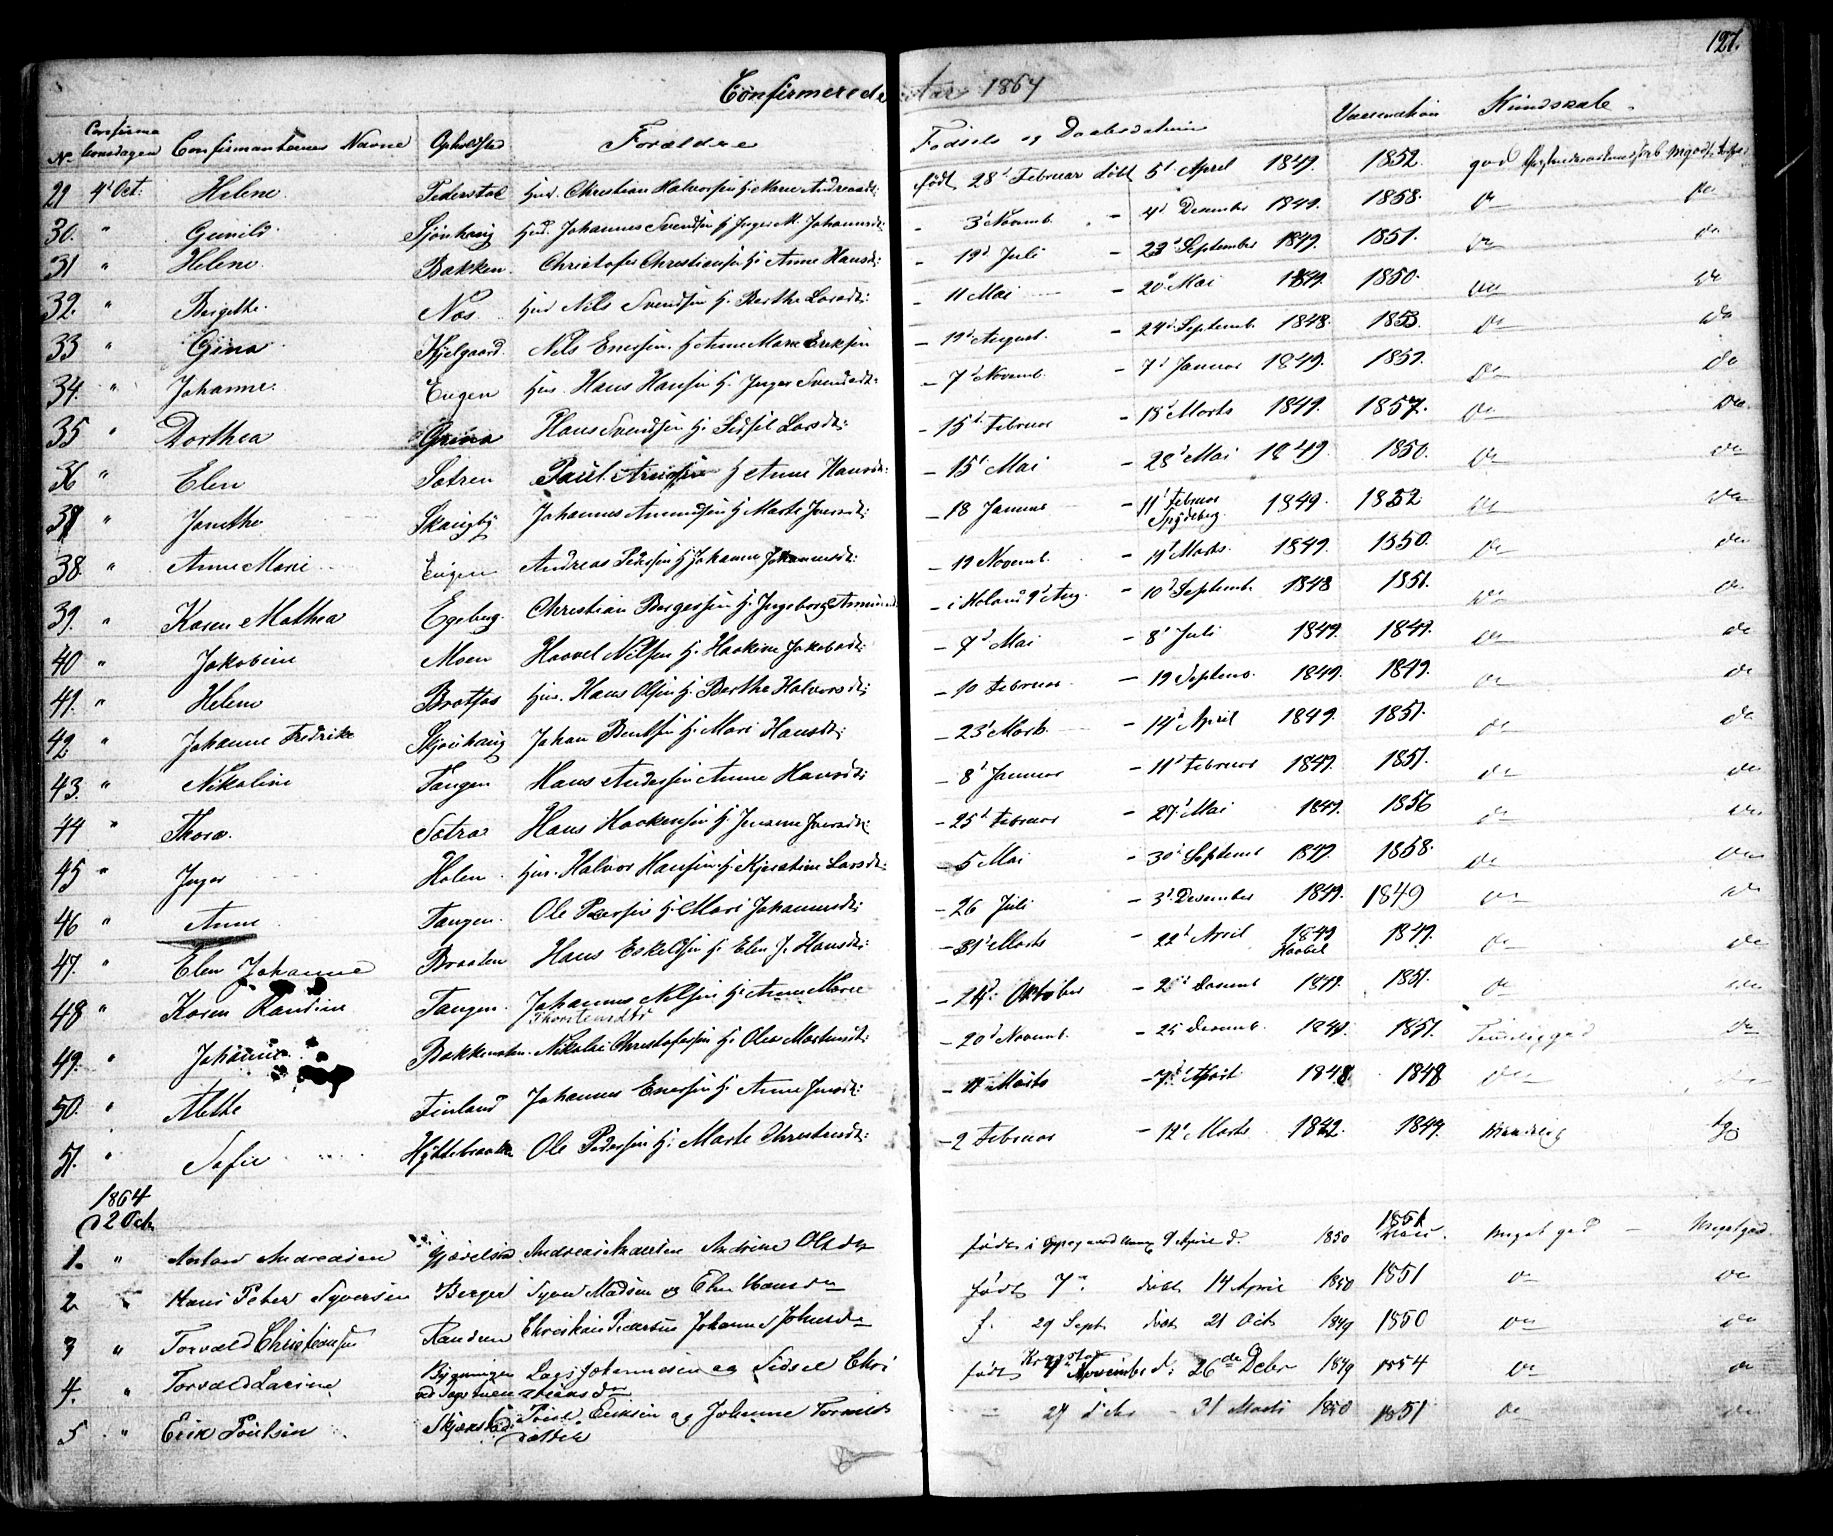 127.
Confirmerede Aar 1864
No Confirmationsdagen Confirmanternes Navne Opholdsted Forældre Fødsels og Daabsdatum Vaccination Kundskab
29 4d Oct: Helene Pederstal Husm. Christian Halvorsen H: Marie Andreasdt: født 28d Februar döbt 5d April 1849. 1852. god
30. " Gunild Sjönhaug Husm. Johannes Svendsen H Inger M. Johannsdt: - 3d Novemb. - 4d December 1849. 1858. do do
31 " Helene. Bakken. Christofer Christiansen H: Anne Hansdt: - 19d Juli - 23d September 1849. 1851. do do
32. " Birgitte. Næs. Husm Nils Svendsen H. Berthe Larsdt: - 11 Mai - 20d Mai 1849. 1850. do do
33 " Gina Kjelgaard. Nils Enersen. H Anne Marie Eriksen - 19d August. - 24d Septemb. 1848. 1853. do do
34. " Johanne. Eugen Hus. Hans Hansen H. Inger Svendsdt: - 7d Novemb. - 7d Januar 1849. 1851. do do
35 " Dorthea Grina Hans Svendsen H: Sidsel Larsdt: - 15d Februar - 18d Marts 1849. 1857. do do
36 " Elen Sotren Paul Arnesen H Anne Hansdt: - 15d Mai - 28d Mai 1849. 1850. do do
37 " Janethe Skaugby Johannes Amundsen H: Marte Iversdt: - 18 Januar - 11d Februar Spydeberg. 1849. 1852 do do
38. " Anne Marie Eugen Andreas Pedersen H Johanne Johannesdt: - 19 Novemb. - 11d Marts. 1849. 1850. do do
39. " Karen Mathea Egeberg. Christian Borgersen H. Ingeborg Amunds - i Høland 9d Aug. - 10d Septemb. 1848 1851. do do
40 " Jakobine Moen Haavel Nilsen H. Haakine Jakobsdt: - 7d Mai - 8d Juli 1849. 1849. do do
41. " Helene Bratfos Hus. Hans Olsen H. Berthe Halvorsdt: - 10 Februar. - 19 Septemb. 1849. 1849. do do
42 " Johanne Fredrike Skjønhaug Johan Bentsen H. Mari Hansdt: - 23d Marts. - 14d April 1849. 1851. do do
43. " Nikoline Tangen Hans Andersen Anne Hansdt: - 8d Januar - 11d Februar 1849. 1851. do do
44 " Thora. Sotra Hans Haakensen H Jensine Iversdt: - 25d Februar - 27d Mai 1849. 1856 do do
45 " Inger Holen Hus. Halvor Hansen. H: Kjerstine Larsdt: - 5 Mai - 30d Septemb 1849. 1858. do do
46 " Anne Tangen. Ole Pedersen H. Mari Johannesdt: - 26 Juli - 3d December 1849. 1849 do do
47. " Elen Johanne Braaten Hans Eskildsen H. Elen J. Hansdt: - 31d Marts - 22d April 1849 1849. do do
48 " Karen Randine Tangen. Johannes Nilsen H: Anne Marie Thorstensdt: - 24d: Oktober - 26d Decemb 1849. 1851. do do
49. " Johanne Nikolai Christofersen H. Olea Martinsdt: - 20d Novemb. - 25 Decemb. 1849. 1851. Temmelig god do
50. " Alette Finland Johannes Enersen H: Anne Jensdt: - 11 Marts - 7d April 1848. 1848 do
51. " Sofie Hyttebraaten Ole Pedersen H: Marte Christensdt: - 2 Februar - 12d Marts 1849. 1849. Maadelig tg.
1864
d 2 Oct
1. " Anton Andreasen Gjøvelsrud Andreas Andersen Andrine Olsda født i April d. 1850 1851 Meget god - Megetgod
2. " Hans Peter Syversen Berger Syver Madsen og Elen Hansda født 7d döbt 14 April 1850 1851 do do
3 " Torvald Christiansen Randum Christian Pedersen Johanne Johnsda f. 29 Sept döbt 21 Oct 1849 1850 do do
4. " Torvald Larsen Bygningen ved Lars Johannesen og Sidsel Christiansda født Krogstad November d: 26de Debr 1849 1854 do do
5 " Erik Poulsen Skjærstad Poul Eriksen og Johanne Torvilds datter - 27 d 31 Marts 1850 1851 do do